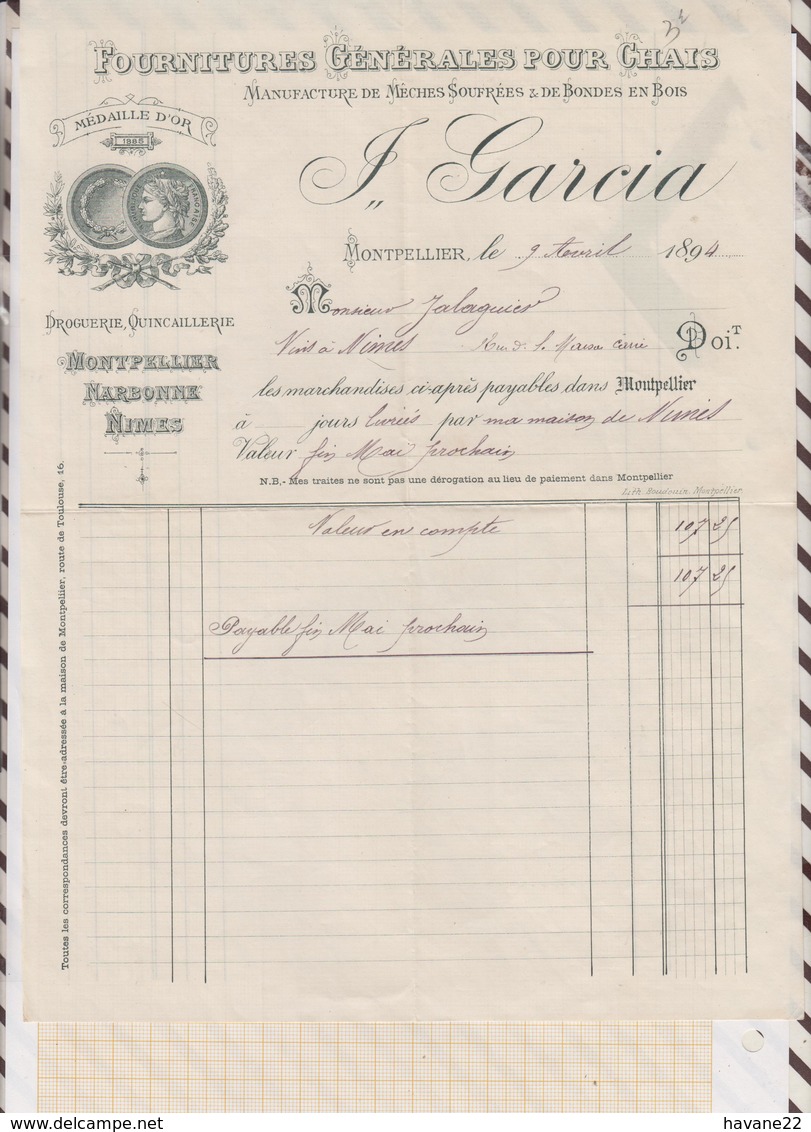 3 f
FOURNITURES GÉNÉRALES POUR CHAIS
MANUFACTURE DE MÊCHES SOUFRÉES & DE BONDES EN BOIS
MÉDAILLE D'OR
1885
J. Garcia
MONTPELLIER, le 9 Avril 1894
Monsieur Jalaguier
Vins à Nimes Rue d. l. Maison Carrée Doi.T
DROGUERIE, QUINCAILLERIE
MONTPELLIER
NARBONNE
NIMES
les marchandises ci-après payables dans Montpellier
à jours livrées par ma maison de Nimes
Valeur fin Mai prochain
N.B.- Mes traites ne sont pas une dérogation au lieu de paiement dans Montpellier
Lith. Boudouin, Montpellier
Valeur en compte 107 25
107 25
Payable fin Mai prochain
Toutes les correspondances devront être adressée à la maison de Montpellier, route de Toulouse, 16.
havane22